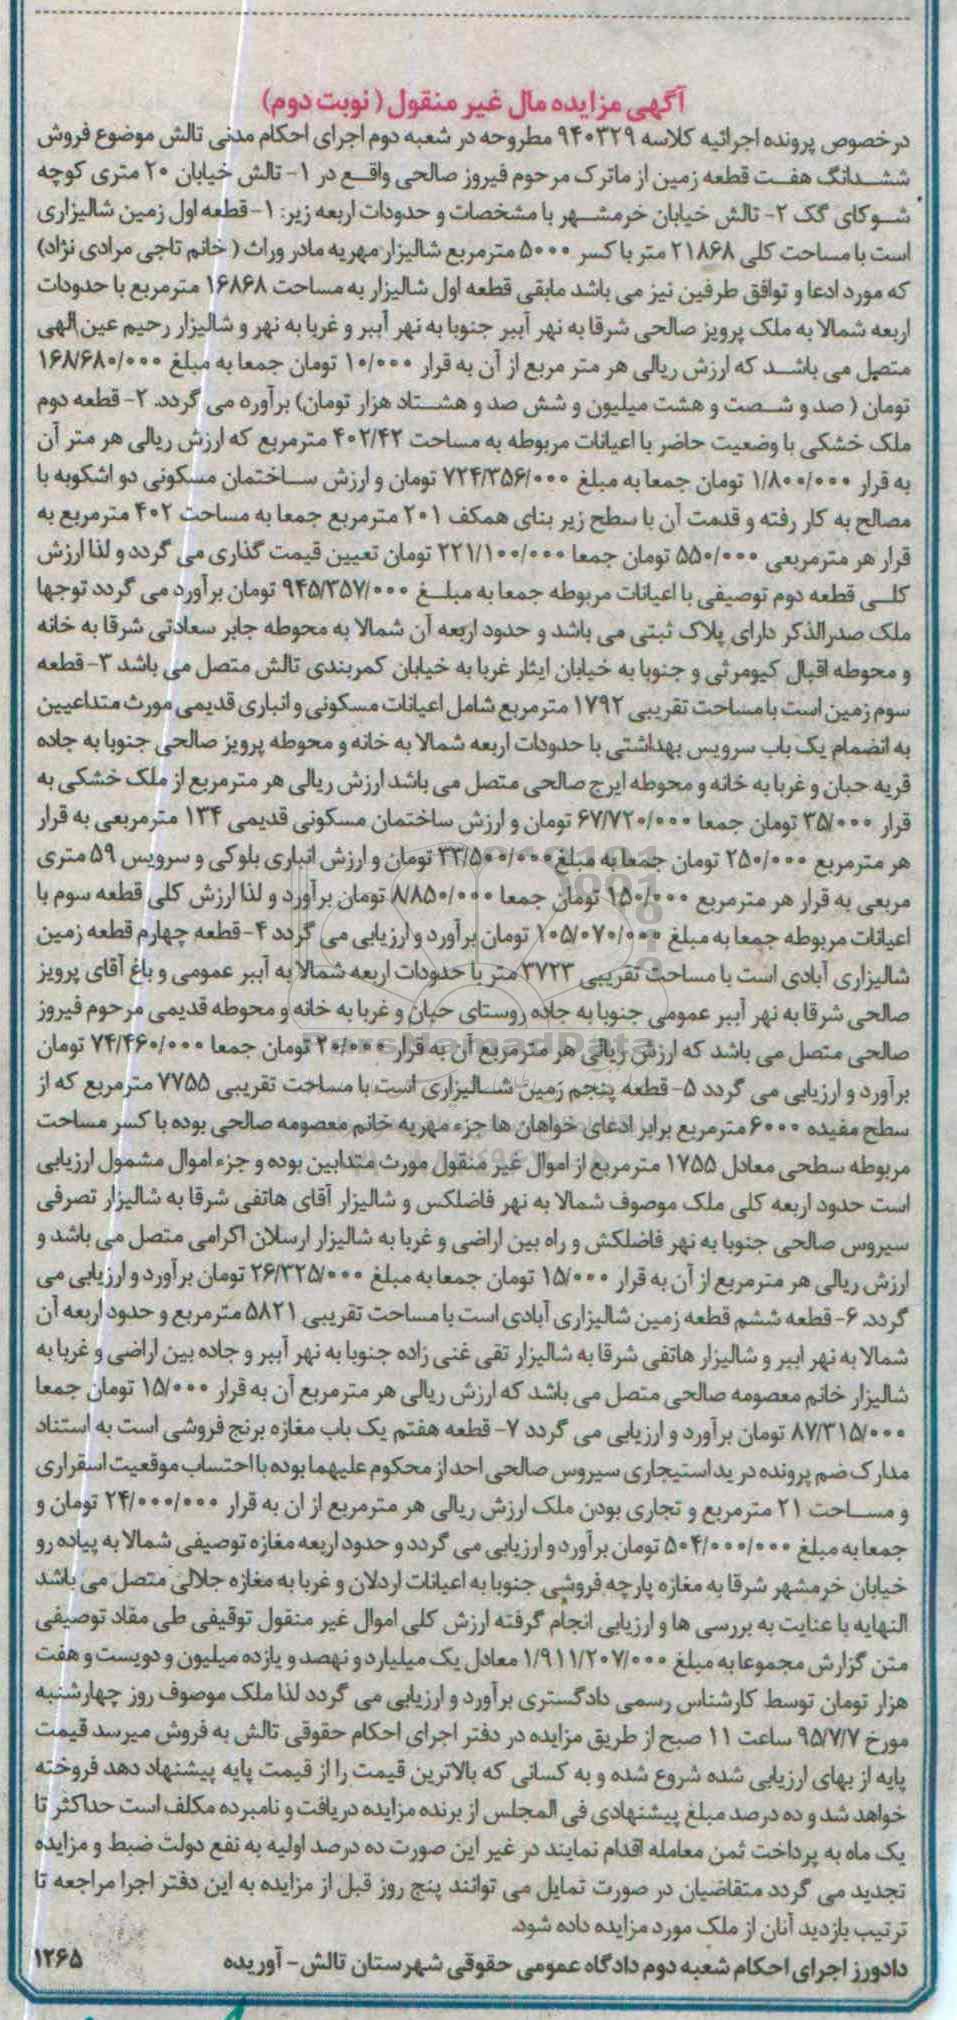 آگهی مزایده مال غیر منقول ( نوبت دوم)
درخصوص پرونده اجرائیه کلاسه ۹۴۰۳۲۹ مطروحه در شعبه دوم اجرای احکام مدنی تالش موضوع فروش
ششدانگ هفت قطعه زمین از ماترک مرحوم فیروز صالحی واقع در ۱- تالش خیابان ۲۰ متری کوچه
شوکای گک ۲- تالش خیابان خرمشهر با مشخصات و حدودات اربعه زیر: ۱- قطعه اول زمین شالیزاری
است با مساحت کلی ۲۱۸۶۸ متر با کسر ۵۰۰۰ مترمربع شالیزار مهریه مادر وراث ( خانم تاجی مرادی نژاد)
که مورد ادعا و توافق طرفین نیز می باشد مابقی قطعه اول شالیزار به مساحت ۱۶۸۶۸ مترمربع با حدودات
اربعه شمالا به ملک پرویز صالحی شرقا به نهر آببر جنوبا به نهر آببر و غربا به نهر و شالیزار رحیم عین الهی
متصل می باشد که ارزش ریالی هر متر مربع از آن به قرار ۱۰/۰۰۰ تومان جمعا به مبلغ ۱۶۸/۶۸۰/۰۰۰
تومان ( صد و شصت و هشت میلیون و شش صد و هشتاد هزار تومان) برآورده می گردد. ۲- قطعه دوم
ملک خشکی با وضعیت حاضر با اعیانات مربوطه به مساحت ۴۰۲/۴۲ مترمربع که ارزش ریالی هر متر آن
به قرار ۱/۸۰۰/۰۰۰ تومان جمعا به مبلغ ۷۲۴/۳۵۶/۰۰۰ تومان و ارزش ساختمان مسکونی دو اشکوبه با
مصالح به کار رفته و قدمت آن با سطح زیر بنای همکف ۲۰۱ مترمربع جمعا به مساحت ۴۰۲ مترمربع به
قرار هر مترمربعی ۵۵۰/۰۰۰ تومان جمعا ۲۲۱/۱۰۰/۰۰۰ تومان تعیین قیمت گذاری می گردد و لذا ارزش
کلی قطعه دوم توصیفی با اعیانات مربوطه جمعا به مبلغ ۹۴۵/۳۵۷/۰۰۰ تومان برآورد می گردد توجها
ملک صدرالذکر دارای پلاک ثبتی می باشد و حدود اربعه آن شمالا به محوطه جابر سعادتی شرقا به خانه
و محوطه اقبال کیومرثی و جنوبا به خیابان ایثار غربا به خیابان کمربندی تالش متصل می باشد ۳- قطعه
سوم زمین است با مساحت تقریبی ۱۷۹۲ مترمربع شامل اعیانات مسکونی و انباری قدیمی مورث متداعیین
به انضمام یک باب سرویس بهداشتی با حدودات اربعه شمالا به خانه و محوطه پرویز صالحی جنوبا به جاده
قریه حبان و غربا به خانه و محوطه ایرج صالحی متصل می باشد ارزش ریالی هر مترمربع از ملک خشکی به
قرار ۳۵/۰۰۰ تومان جمعا ۶۷/۷۲۰/۰۰۰ تومان و ارزش ساختمان مسکونی قدیمی ۱۳۴ مترمربعی به قرار
هر مترمربع ۲۵۰/۰۰۰ تومان جمعا به مبلغ ۳۳/۵۰۰/۰۰۰ تومان و ارزش انباری بلوکی و سرویس ۵۹ متری
مربعی به قرار هر مترمربع ۱۵۰/۰۰۰ تومان جمعا ۸/۸۵۰/۰۰۰ تومان برآورد و لذا ارزش کلی قطعه سوم با
اعیانات مربوطه جمعا به مبلغ ۱۰۵/۰۷۰/۰۰۰ تومان برآورد و ارزیابی می گردد ۴- قطعه چهارم قطعه زمین
شالیزاری آبادی است با مساحت تقریبی ۳۷۲۳ متر با حدودات اربعه شمالا به آببر عمومی و باغ آقای پرویز
صالحی شرقا به نهر آببر عمومی جنوبا به جاده روستای حبان و غربا به خانه و محوطه قدیمی مرحوم فیروز
صالحی متصل می باشد که ارزش ریالی هر مترمربع آن به قرار ۲۰/۰۰۰ تومان جمعا ۷۴/۴۶۰/۰۰۰ تومان
برآورد و ارزیابی می گردد ۵- قطعه پنجم زمین شالیزاری است با مساحت تقریبی ۷۷۵۵ مترمربع که از
سطح مفیده ۶۰۰۰ مترمربع برابر ادعای خواهان ها جزء مهریه خانم معصومه صالحی بوده با کسر مساحت
مربوطه سطحی معادل ۱۷۵۵ مترمربع از اموال غیر منقول مورث متدابین بوده و جزء اموال مشمول ارزیابی
است حدود اربعه کلی ملک موصوف شمالا به نهر فاضلکس و شالیزار آقای هاتفی شرقا به شالیزار تصرفی
سیروس صالحی جنوبا به نهر فاضلکش و راه بین اراضی و غربا به شالیزار ارسلان اکرامی متصل می باشد و
ارزش ریالی هر مترمربع از آن به قرار ۱۵/۰۰۰ تومان جمعا به مبلغ ۲۶/۳۲۵/۰۰۰ تومان برآورد و ارزیابی می
گردد. ۶- قطعه ششم قطعه زمین شالیزاری آبادی است با مساحت تقریبی ۵۸۲۱ مترمربع و حدود اربعه آن
شمالا به نهر ابیر و شالیزار هاتفی شرقا به شالیزار تقی غنی زاده جنوبا به نهر آببر و جاده بین اراضی و غربا به
شالیزار خانم معصومه صالحی متصل می باشد که ارزش ریالی هر مترمربع آن به قرار ۱۵/۰۰۰ تومان جمعا
۸۷/۳۱۵/۰۰۰ تومان برآورد و ارزیابی می گردد ۷- قطعه هفتم یک باب مغازه برنج فروشی است به استناد
مدارک ضم پرونده در ید استیجاری سیروس صالحی احد از محکوم علیهما بوده با احتساب موقعیت اسقراری
و مساحت ۲۱ مترمربع و تجاری بودن ملک ارزش ریالی هر مترمربع از ان به قرار ۲۴/۰۰۰/۰۰۰ تومان و
جمعا به مبلغ ۵۰۴/۰۰۰/۰۰۰ تومان برآورد و ارزیابی می گردد و حدود اربعه مغازه توصیفی شمالا به پیاده رو
خیابان خرمشهر شرقا به مغازه پارچه فروشی جنوبا به اعیانات اردلان و غربا به مغازه جلالی متصل می باشد
النهایه با عنایت به بررسی ها و ارزیابی انجام گرفته ارزش کلی اموال غیر منقول توقیفی طی مفاد توصیفی
متن گزارش مجموعا به مبلغ ۱/۹۱۱/۲۰۷/۰۰۰ معادل یک میلیارد و نهصد و یازده میلیون و دویست و هفت
هزار تومان توسط کارشناس رسمی دادگستری برآورد و ارزیابی می گردد لذا ملک موصوف روز چهارشنبه
مورخ ۹۵/۷/۷ ساعت ۱۱ صبح از طریق مزایده در دفتر اجرای احکام حقوقی تالش به فروش میرسد قیمت
پایه از بهای ارزیابی شده شروع شده و به کسانی که بالاترین قیمت را از قیمت پایه پیشنهاد دهد فروخته
خواهد شد و ده درصد مبلغ پیشنهادی فی المجلس از برنده مزایده دریافت و نامبرده مکلف است حداکثر تا
یک ماه به پرداخت ثمن معامله اقدام نمایند در غیر این صورت ده درصد اولیه به نفع دولت ضبط و مزایده
تجدید می گردد متقاضیان در صورت تمایل می توانند پنج روز قبل از مزایده به این دفتر اجرا مراجعه تا
ترتیب بازدید آنان از ملک مورد مزایده داده شود.
دادورز اجرای احکام شعبه دوم دادگاه عمومی حقوقی شهرستان تالش- آوریده ۱۲۶۵